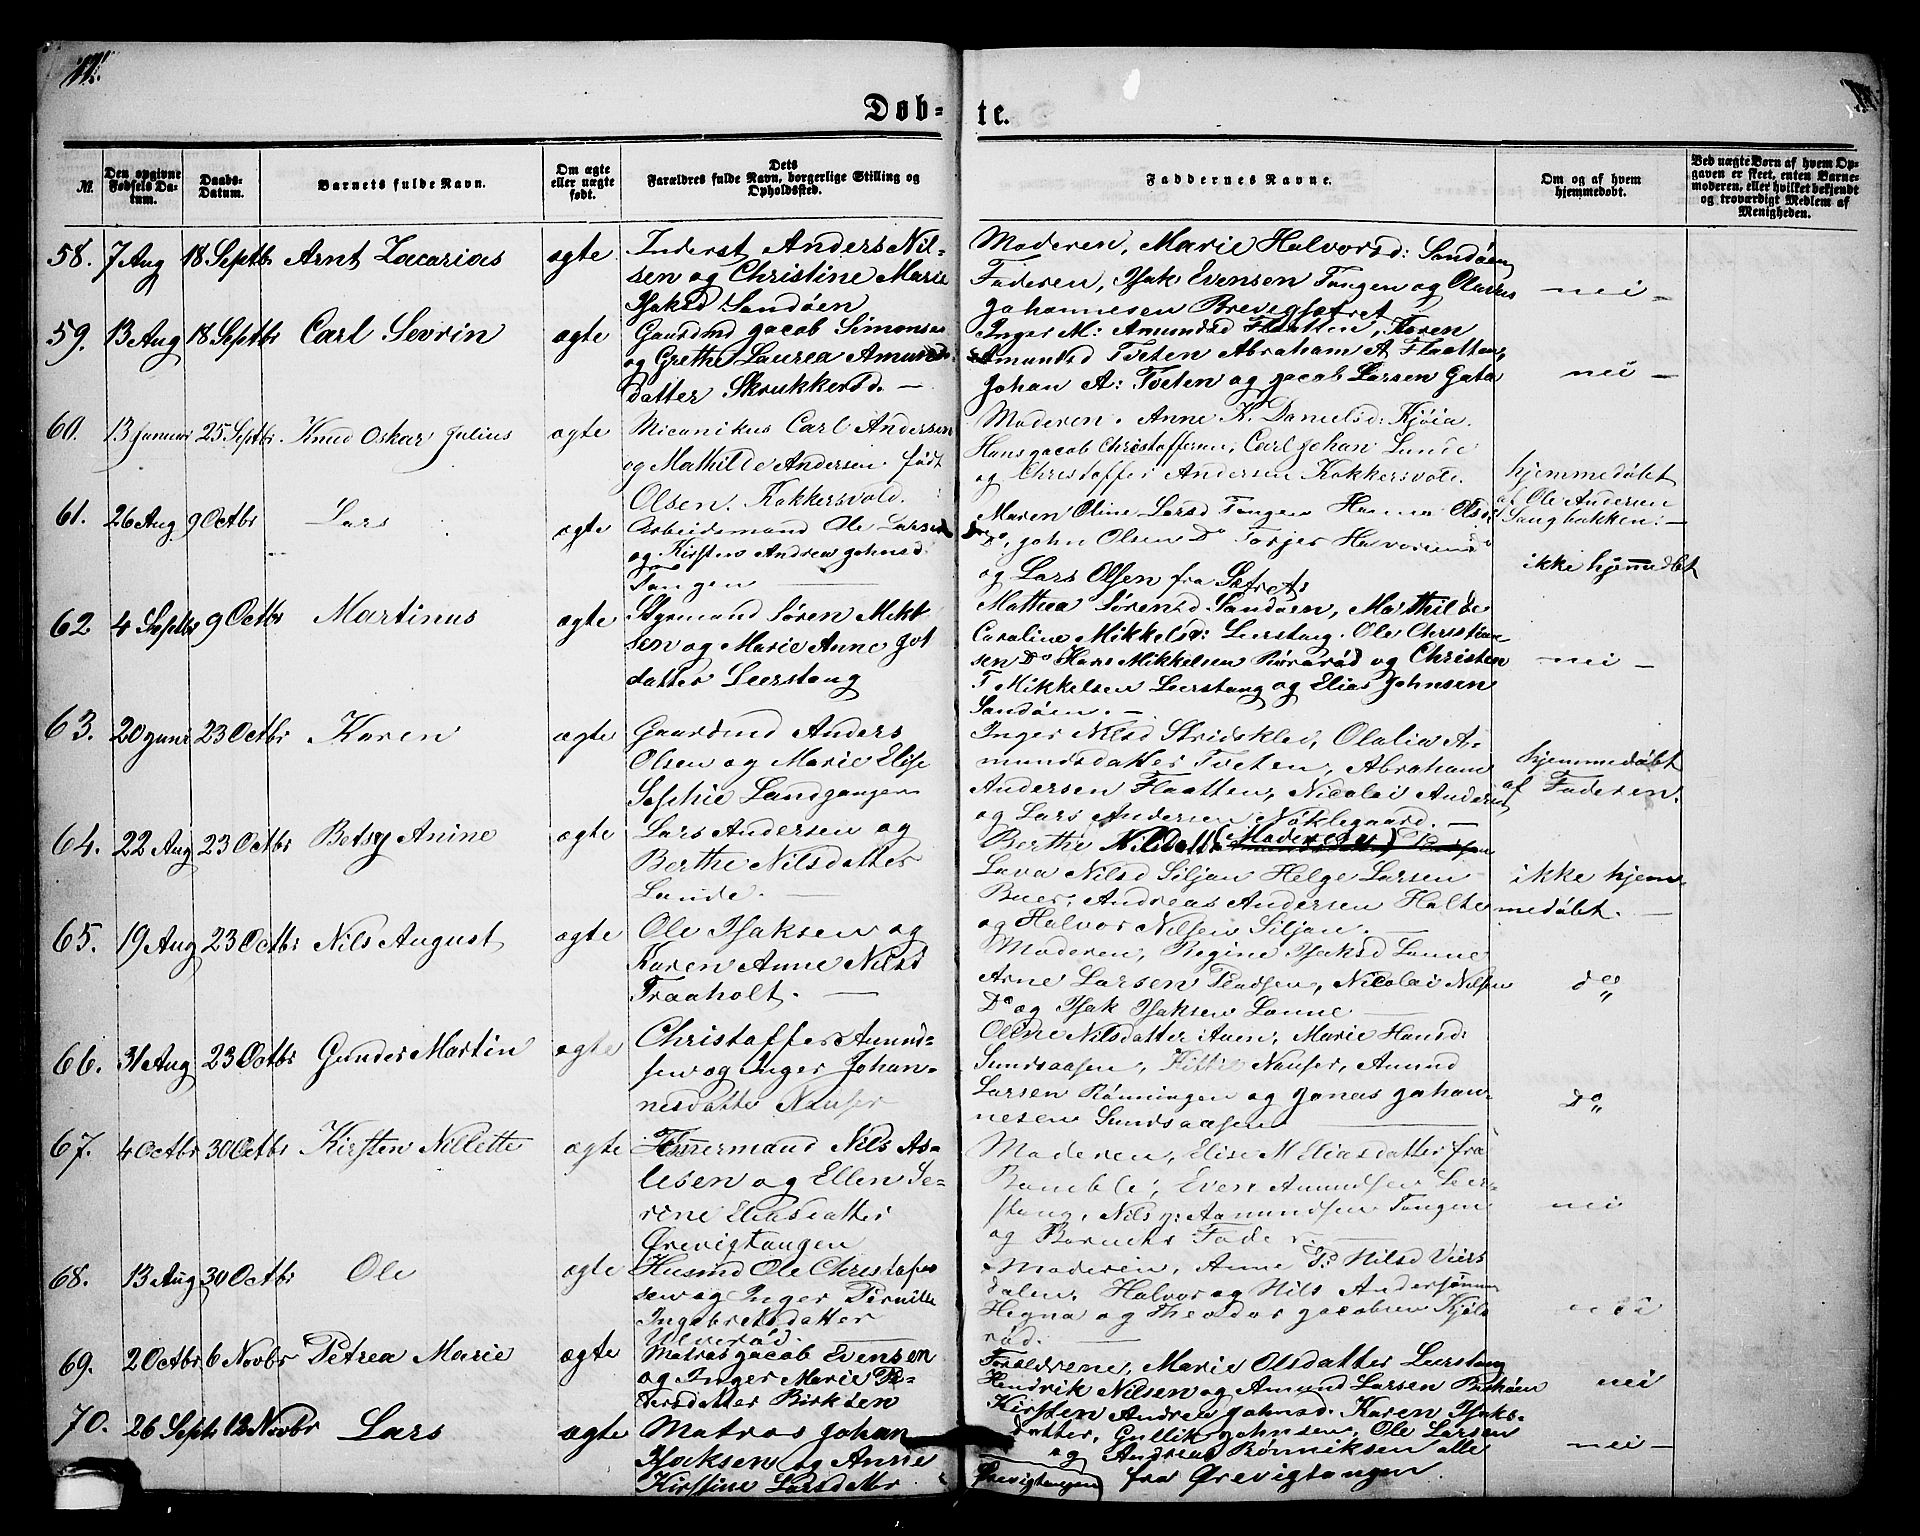 Døb-
te.
№.
Den opgivne Fødsels Datum.
Daabs-Datum.
Barnets fulde Navn.
Om ægte eller uægte født.
Dets Forældres fulde Navn, borgerlige Stilling og Opholdssted.
Faddernes Navne.
Om og af hvem hjemmedøbt.
Ved uægte Børn af hvem Opgaven er skeet, enten Barnemoderen, eller hvilket bekjendt og troværdigt Medlem af Menigheden.
58. 7 Aug 18 Septbr Arnt Zacarias ægte
Inderst Anders Nil-
sen og Christine Marie
Isaksd Sandøen
Moderen, Marie Halvorsd: Sandøen
Faderen, Isak Evensen Tangen og
Johannesen
nei -
59. 13 Aug 18 Septbr Carl Sevrin ægte
Gaardmd Jacob Simonsen
og Grethe Laurea Amunds-
datter Skrukkerød. -
Inger M: Amundsd Flaatten, Karen
Amundsd Tveten Abraham A Flaatten,
Johan A: Tveten og Jacob Larsen Gata
nei -
60. 13 Januar 25 Septbr. Knud Oskar Julius ægte
Micanikus Carl Andersen
og Mathilde Andersen født
Olsen. Kokkersvold.
Moderen. Anne K. Danielsd: Kjøia.
Hans Jacob Christoffersen, Carl Johan Lunde
og Christoffer Andersen Kokkersvold.
hjemmedøbt
af Ole Andersen
Langbakken. -
61. 26 Aug 9 Octbr Lars ægte
Arbeidsmand Ole Larsen
og Kirsten Andrea Johnsd.
Tangen
Maren Oline Larsd Tangen Hanna Olsd
Do, John Olsen Do Torjer Halvorsen Do
og Lars Olsen fra
ikke hjemmedøbt
62 4 Septbr 9 Octbr Martinus ægte
Styrmand Søren Mikk
sen og Marie Anne
datter Leerstang
Mathea Sørensd Sandøen, Mathilde
Caroline Mikkelsd: Leerstang. Ole Christian
sen Do Hans Mikkelsen Rørerød og Christen
T Mikkelsen Leerstang og Elias Johnsen
Sandøen. -
nei -
63. 20 Juni 23 Octbr Karen ægte
Gaardmd Anders
Olsen og Marie Elise
Sophie Landgangen
Inger Nilsd Stridsklev, Olalia A-
mundsdatter Tveten, Abraham
Andersen Flaatten, Nicolai Andersen
og Lars Andersen Nøklegaard. -
hjemmedøbt
af Faderen.
64. 22 Aug 23 Octbr Betsy Anine ægte
Lars Andersen og
Berthe Nilsdatter
Lunde. -
Berthe Nilsdatt. (Moderen)
Lava Nilsd Siljan Helge Larsen
Buer, Andreas Andersen Holte
og Halvor Nilsen Siljan. -
ikke hjem-
medøbt. -
65. 19 Aug 23 Octbr Nils August ægte
Ole Isaksen og
Karen Anne Nilsd
Traaholt. -
Moderen, Regine Isaksd Lonne
Arne Larsen Pladsen, Nicolai Nilsen
Do og Isak Isaksen Lonne
do „
66. 31 Aug 23 Octbr Gunder Martin ægte
Christoffer Amund-
sen og Inger Johan-
nesdatter Nauser
Oline Nilsdatter Auen, Marie Hansd:
Sundsaasen, Kittil Nauser, Amund
Larsen Rønningen og Jonas Johan-
nesen Sundsaasen
Do „
67. 4 Octbr 30 Octbr Kirsten Nillette ægte
Tømmermand Nils As-
lesen og Ellen Se-
rine Eliasdatter
Ørevigtangen
Moderen, Elise M Eliasdatter fra
Bamble, Even Amundsen Leer-
stang, Nils J: Aamundsen Tangen
og Barnets Fader. -
nei
68. 13 Aug 30 Octbr Ole ægte
Husmd Ole Christofer
sen og Inger Pernille
Ingebretsdatter
Ulverød.
Moderen, Anne P: Nilsd Viers
dalen, Halvor og Nils Anderssønner
Hegna og Theodor Jacobsen Kjøls
rød.
nei
69. 2 Octbr 6 Novbr Petrea Marie ægte
Matros Jacob Evensen
og Inger Marie Pe-
tersdatter Birksen
Forældrene, Marie Olsdatter Leerstang
Hendrik Nilsen og Amund Larsen Bukøen
nei
70. 26 Septr 12 Novbr Lars ægte
Matros Johan
Isaksen og Anne
Kirstine Larsdatter
Ørevigtangen
Kirsten Andrea Johnsd. Karen Isaks-
datter, Gullik Johnsen, Ole Larsen
og Andreas Rønniksen alle
fra Ørevigtangen
nei -